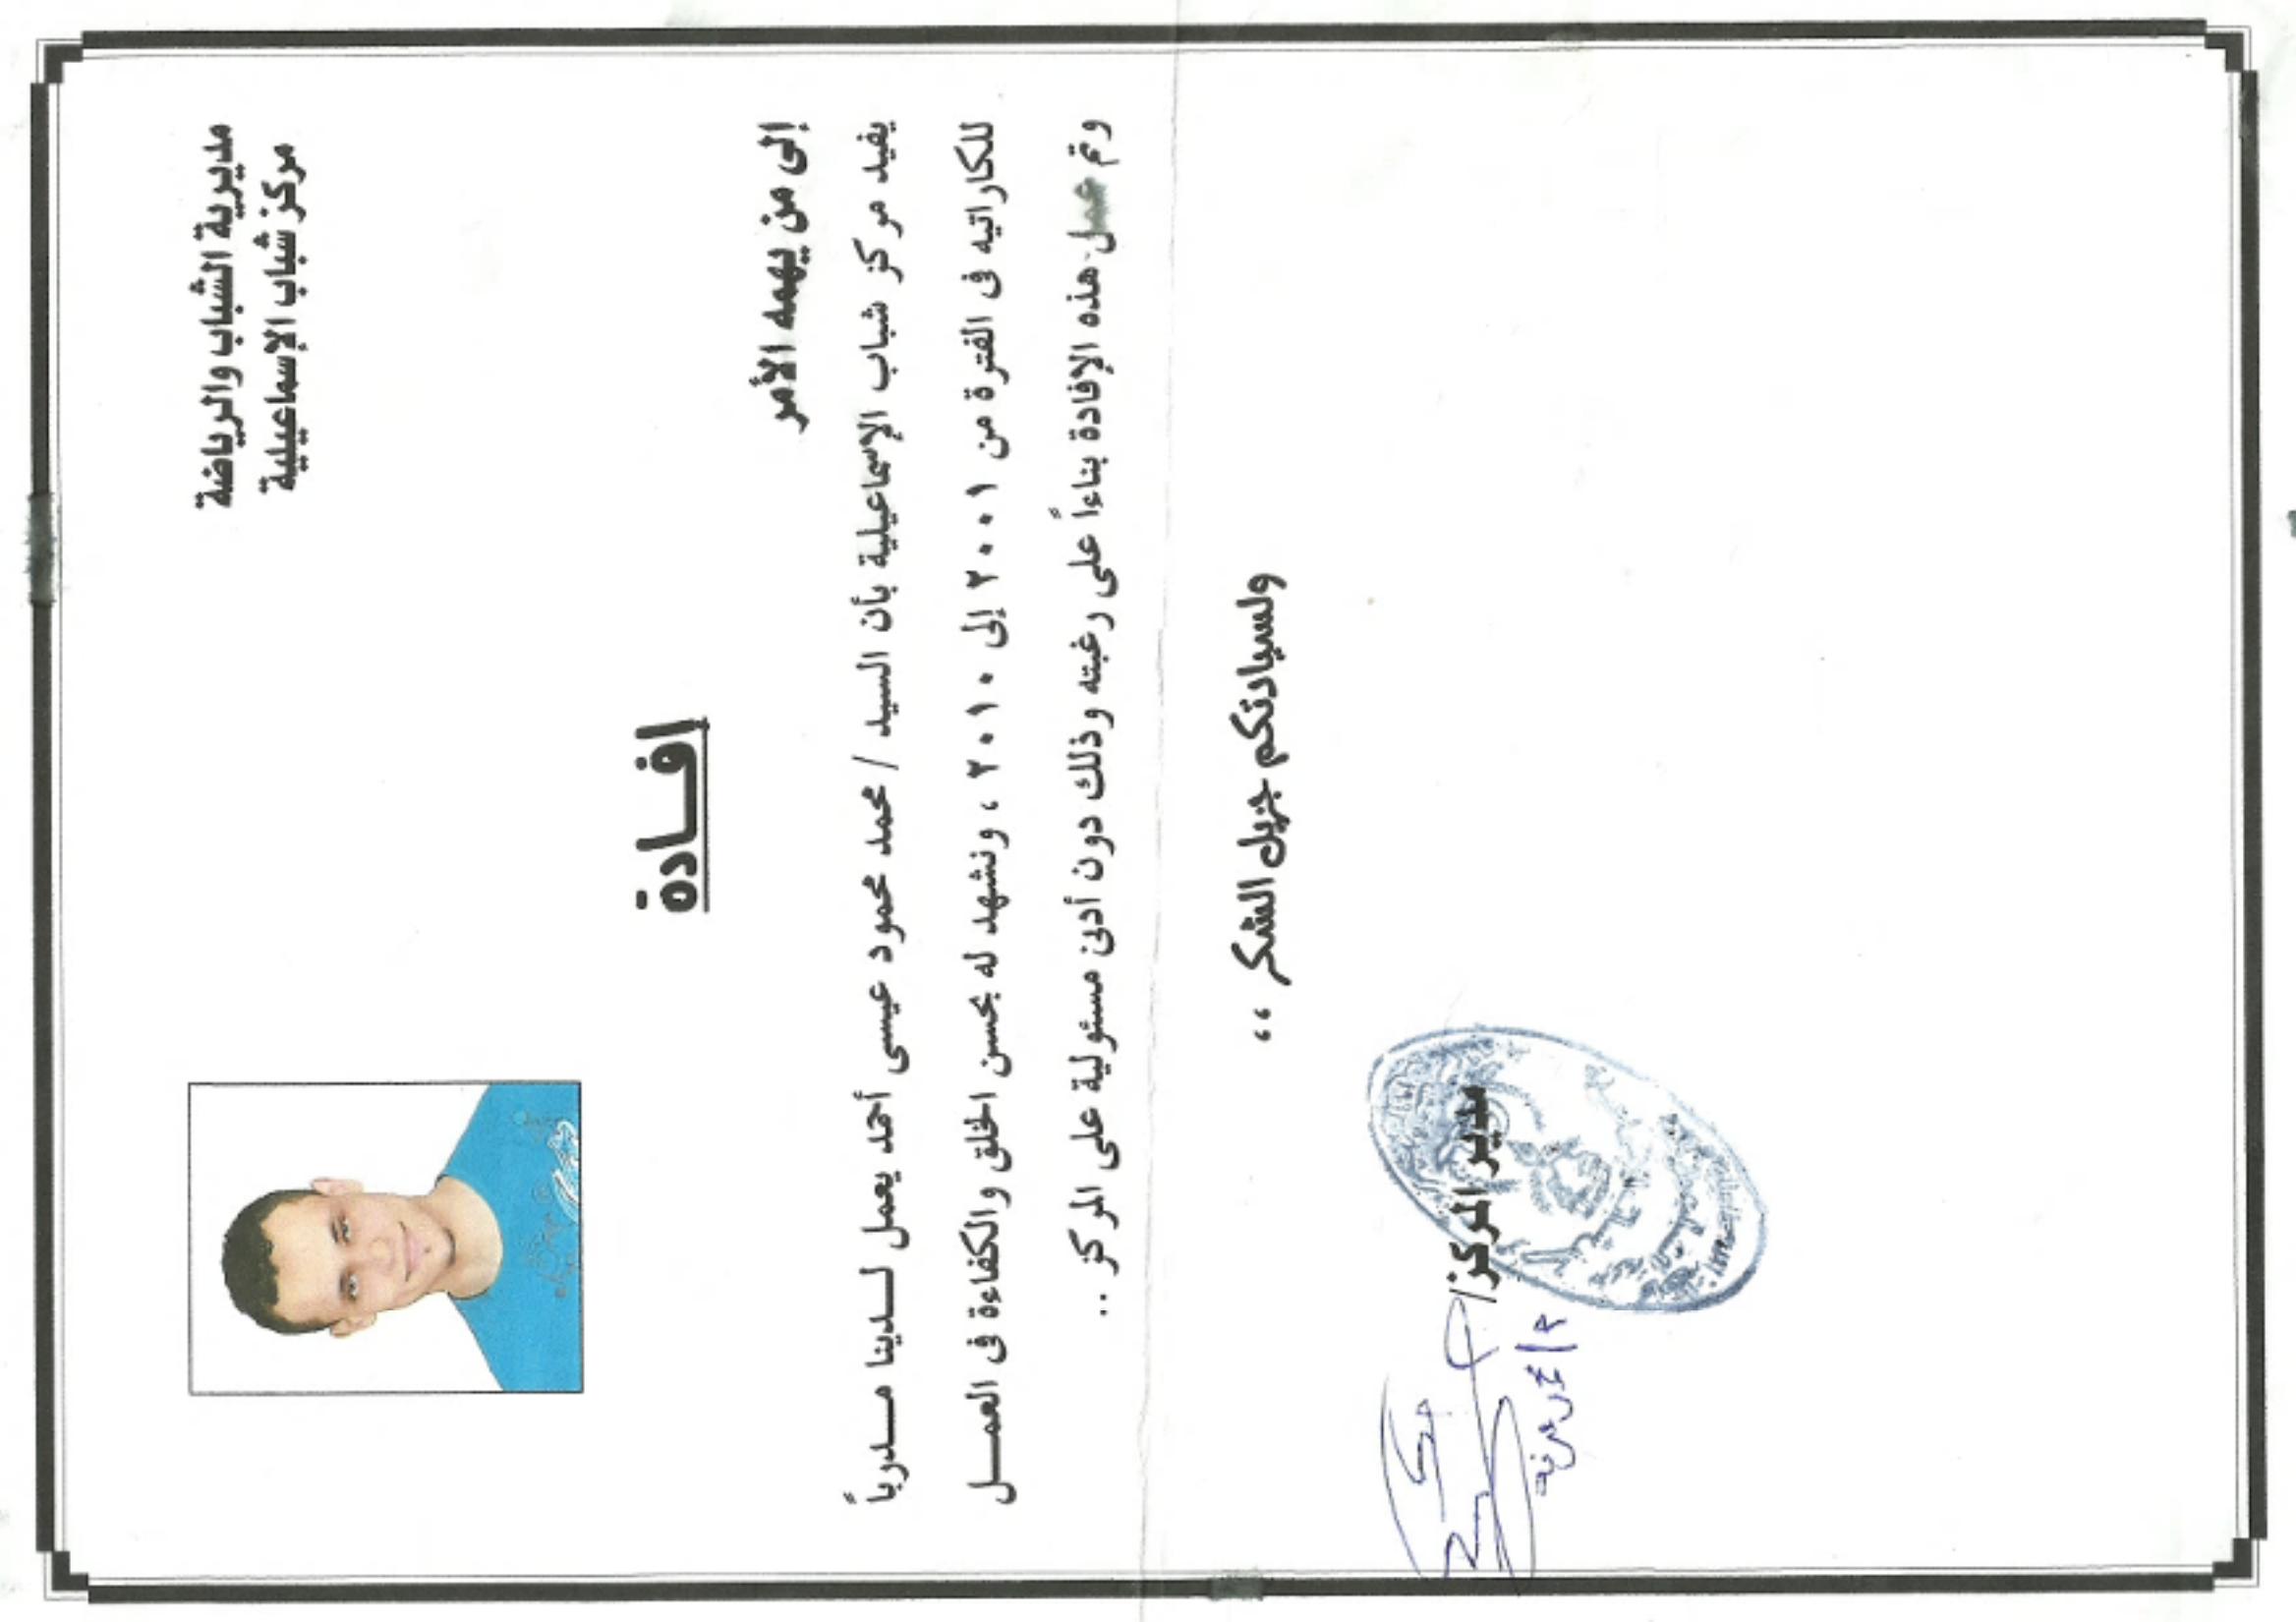 مديرية الشباب والرياضة
مركز شباب الإسماعيلية
إفــادة
إلى من يهمه الأمر
يفيد مركز شباب الإسماعيلية بأن السيد / محمد محمود عيسى أحمد يعمل لــدينا مــدرباً
للكاراتيه فى الفترة من ٢٠٠١ إلى ٢٠١٠ ، ونشهد له بحسن الخلق والكفاءة فى العمــل
وتم عمل هذه الإفادة بناءاً على رغبته وذلك دون أدنى مسئولية على المركز ..
ولسيادتكم جزيل الشكر ،،
مدير المركز/